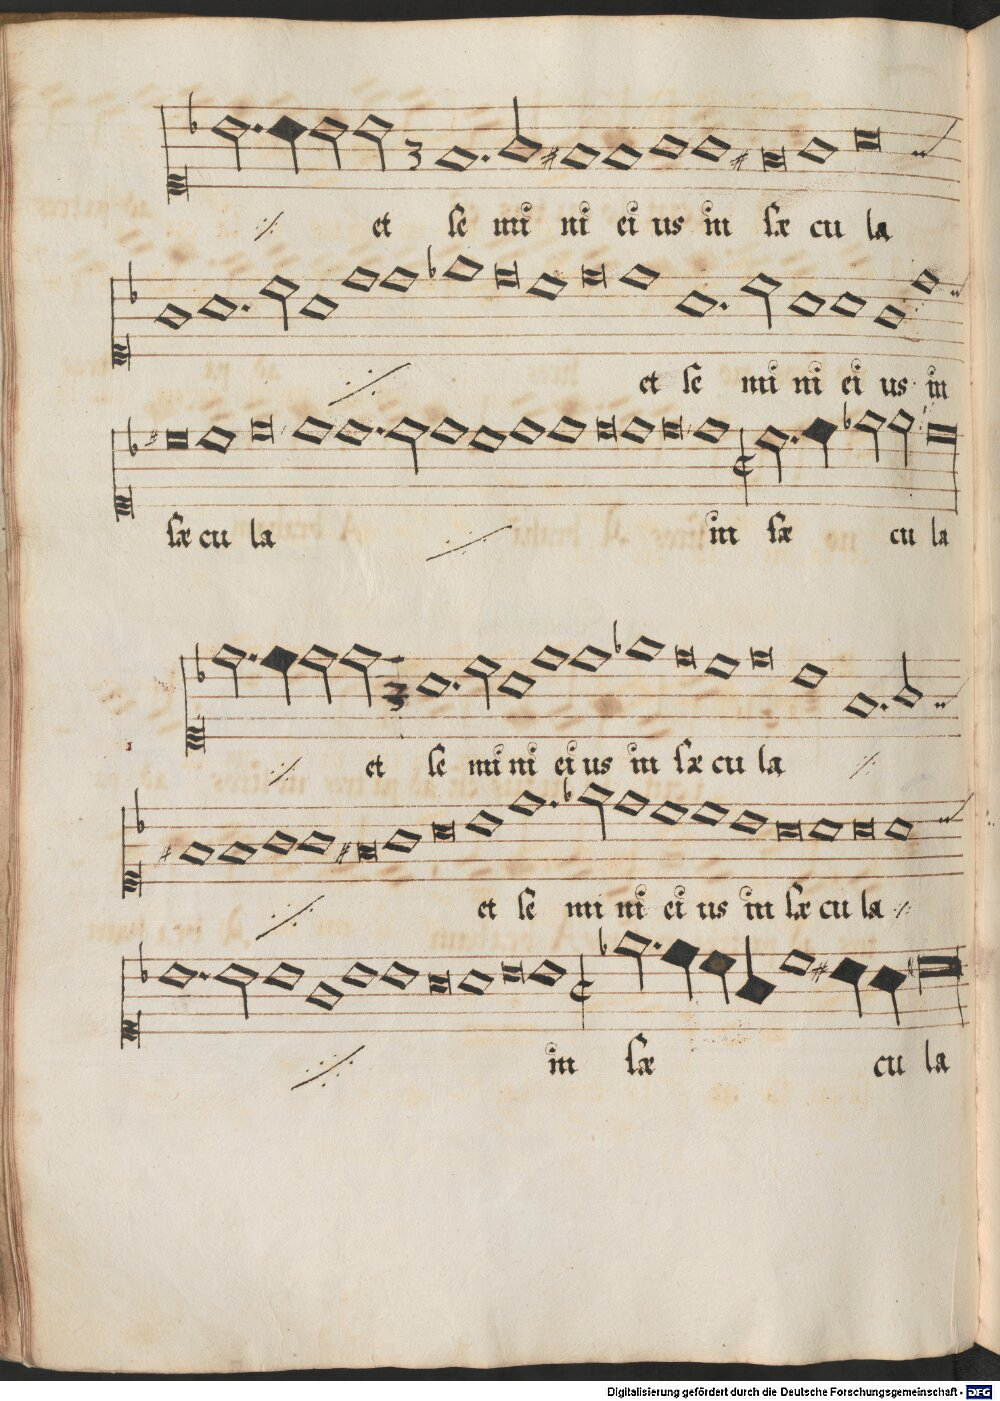 et se mi ni ei us in sæ cu la
et se mi ni ei us in
sæ cu la in sæ cu la
et se mi ni ei us in sæ cu la
et se mi ni ei us in sæ cu la
in sæ cu la
Digitalisierung gefördert durch die Deutsche Forschungsgemeinschaft - DFG